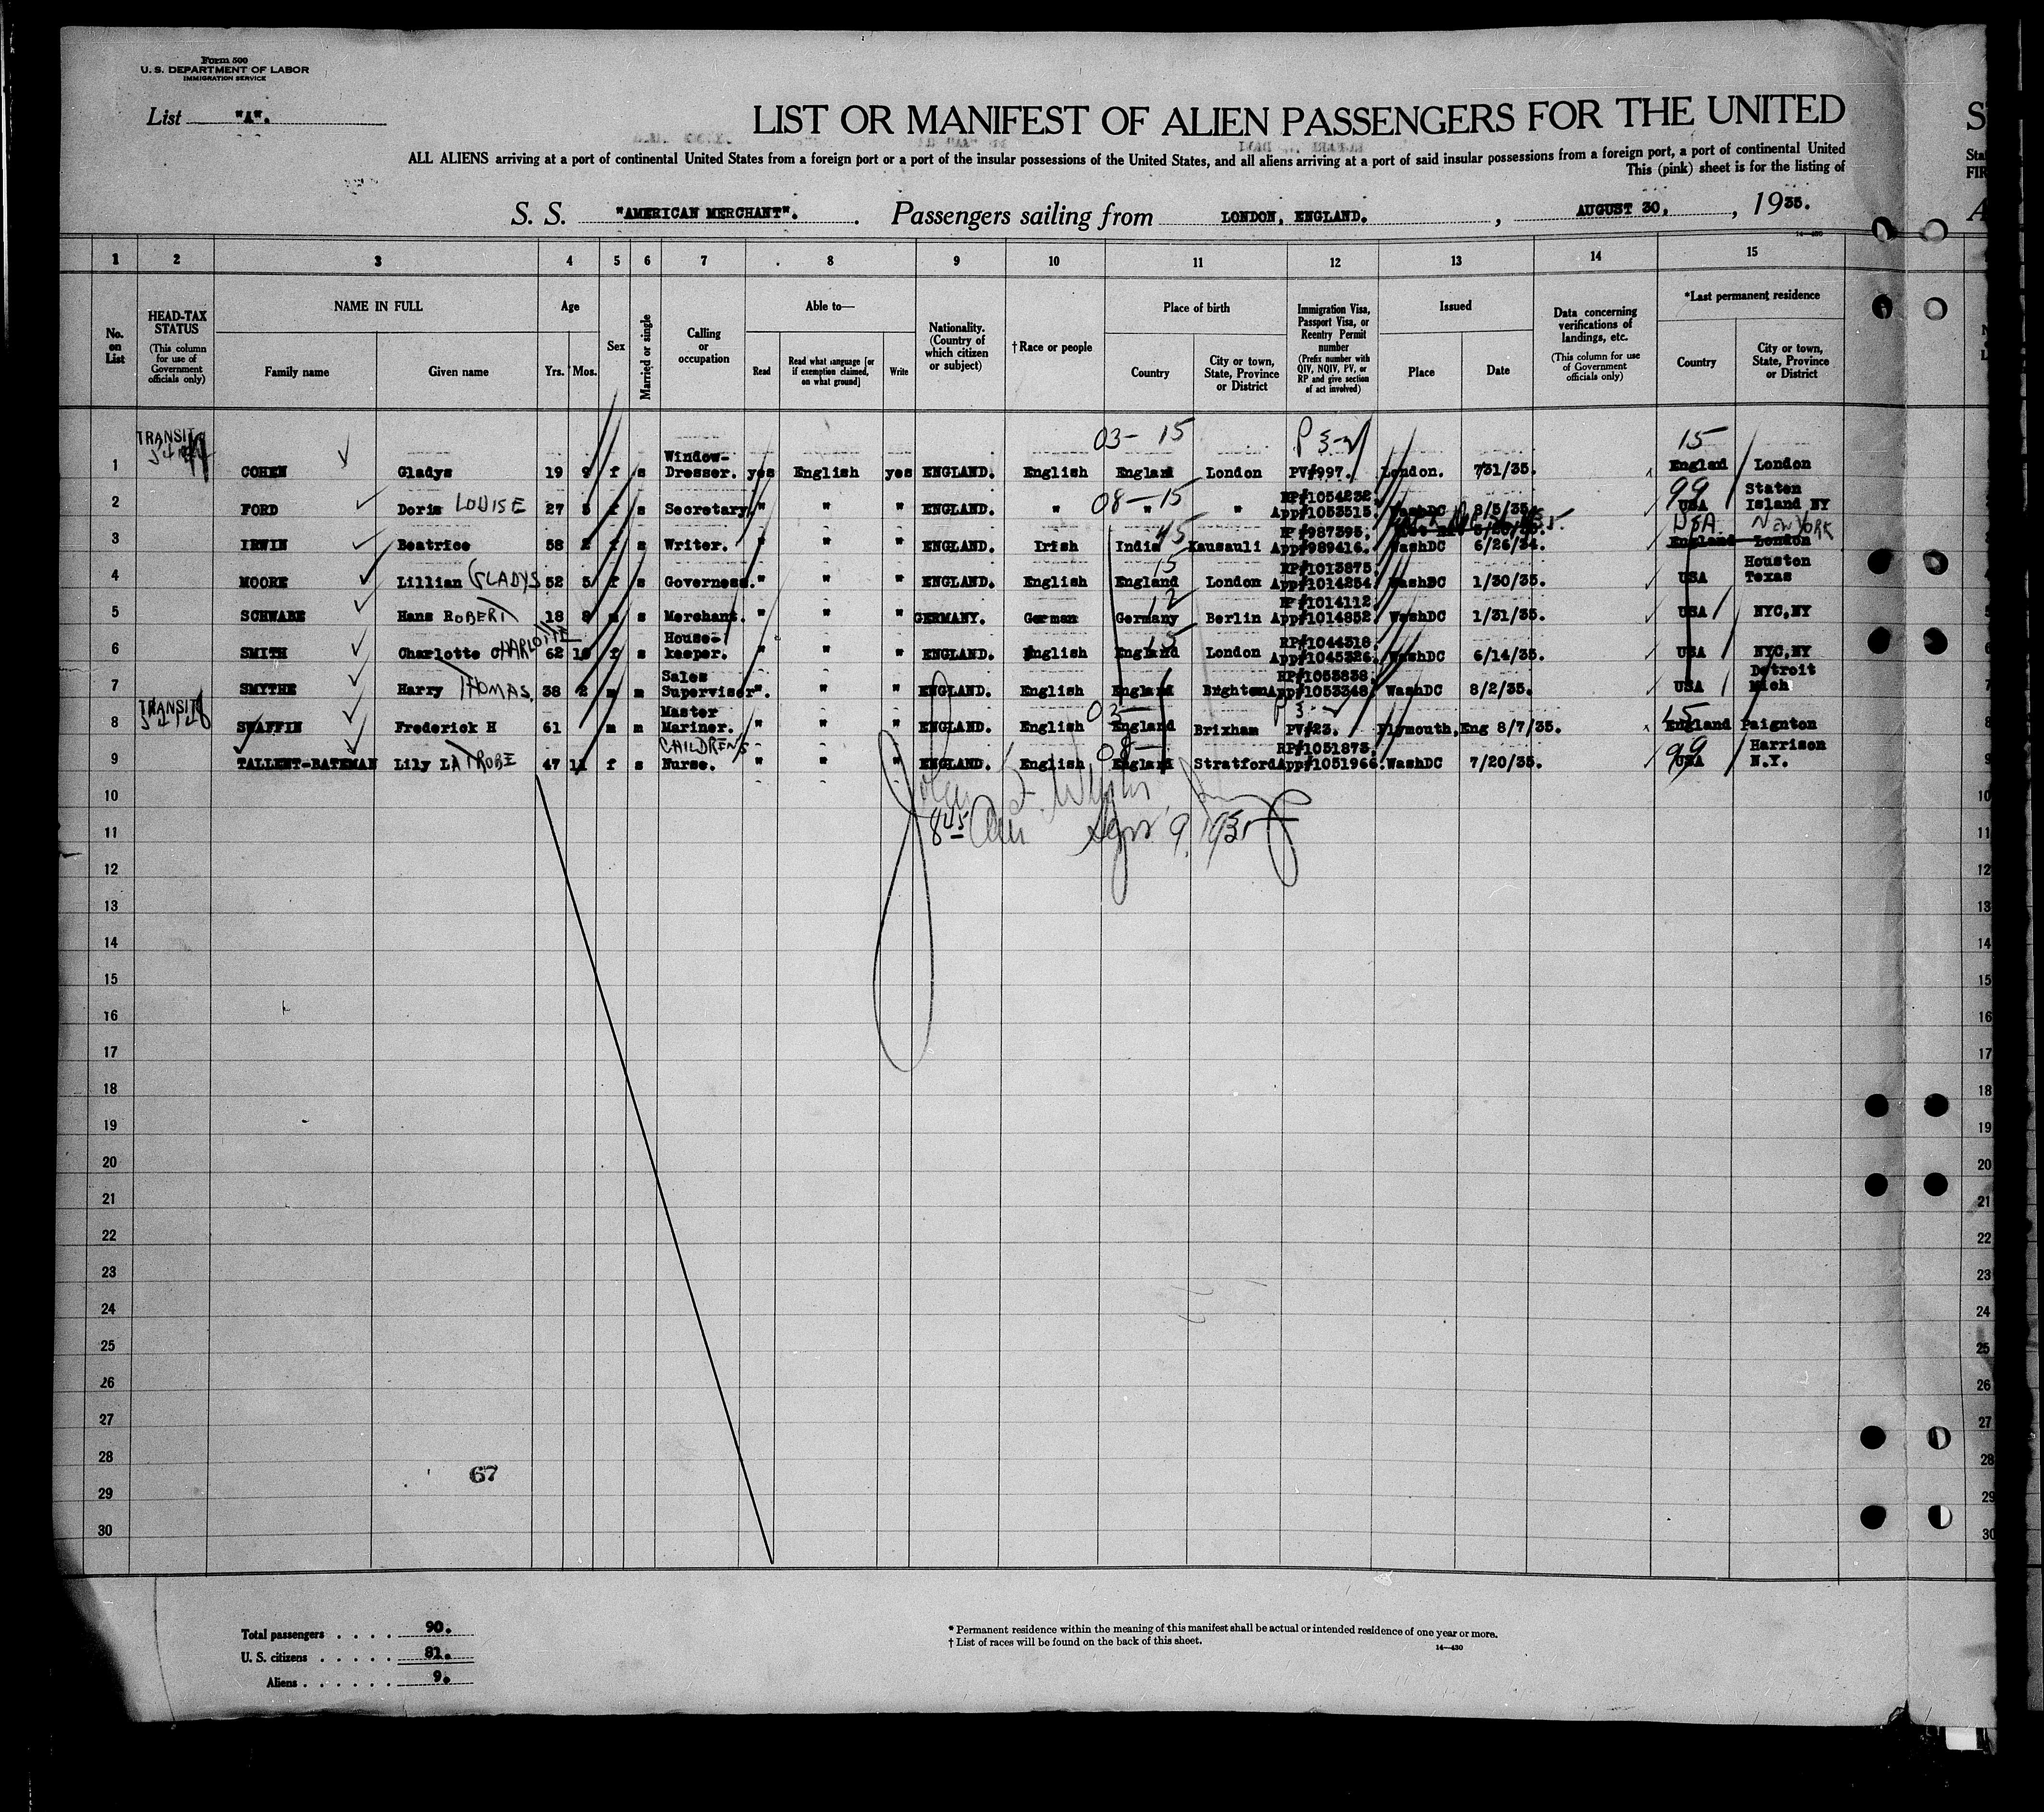 Form 500
U. S. DEPARTMENT OF LABOR
IMMIGRATION SERVICE
List "A".
LIST OR MANIFEST OF ALIEN PASSENGERS FOR THE UNITED
ALL ALIENS arriving at a port of continental United States from a foreign port or a port of the insular possessions of the United States, and all aliens arriving at a port of said insular possessions from a foreign port, a port of continental United
This (pink) sheet is for the listing of
S. S. "AMERICAN MERCHANT". Passengers sailing from LONDON, ENGLAND. , AUGUST 30, , 1935.
1 2 3 4 5 6 7 8 9 10 11 12 13 14 15
No. on List
HEAD-TAX STATUS (This column for use of Government officials only)
NAME IN FULL Family name Given name
Age Yrs. Mos.
Sex
Married or single
Calling or occupation
Able to— Read Read what language [or if exemption claimed, on what ground] Write
Nationality. (Country of which citizen or subject)
† Race or people
Place of birth Country City or town, State, Province or District
Immigration Visa, Passport Visa, or Reentry Permit number (Prefix number with QIV, NQIV, PV, or RP and give section of act involved)
Issued Place Date
Data concerning verifications of landings, etc. (This column for use of Government officials only)
*Last permanent residence Country City or town, State, Province or District
TRANSIT 03- 15 P 3- 15
1 COHEN Gladys 19 9 f s Window-Dresser. yes English yes ENGLAND. English England London PV#997. London. 731/35. England London
08-15 99
2 FORD Doris LOUISE 27 5 f s Secretary. " " " ENGLAND. " " " RP#1054232. App#1053515. WashDC 8/5/35. USA Staten Island NY
45 USA. NEW YORK
3 IRWIN Beatrice 58 2 f s Writer. " " " ENGLAND. Irish India Kausauli RP#987395. App#989416. WashDC 6/26/34. England London
15
4 MOORE Lillian GLADYS 52 5 f s Governess. " " " ENGLAND. English England London RP#1013875. App#1014254. WashDC 1/30/35. USA Houston Texas
12
5 SCHWABE Hans ROBERT 18 8 m s Merchant. " " " GERMANY. German Germany Berlin RP#1014112. App#1014852. WashDC 1/31/35. USA NYC,NY
15
6 SMITH Charlotte CHARLOTTE 62 10 f s House-keeper. " " " ENGLAND. English England London RP#1044318. App#1045326. WashDC 6/14/35. USA NYC,NY
7 SMYTHE Harry THOMAS. 38 2 m m Sales Supervisor". " " ENGLAND. English England Brighton RP#1053838. App#1053348. WashDC 8/2/35. USA Detroit Mich
TRANSIT 03- P 3- 15
8 SWAFFIN Frederick H 61 m m Master Mariner. " " " ENGLAND. English England Brixham PV#23. Plymouth,Eng 8/7/35. England Paignton
CHILDREN'S 08- 99
9 TALLENT-BATEMAN Lily LATROBE 47 11 f s Nurse. " " " ENGLAND. English England Stratford RP#1051873. App#1051966. WashDC 7/20/35. USA Harrison N.Y.
10
8 45 am Sept 9, 1935
11
12
13
14
15
16
17
18
19
20
21
22
23
24
25
26
27
28
67
29
30
Total passengers . . . . 90.
U. S. citizens . . . . . 81.
Aliens . . . . . . 9.
* Permanent residence within the meaning of this manifest shall be actual or intended residence of one year or more.
† List of races will be found on the back of this sheet.
14—430